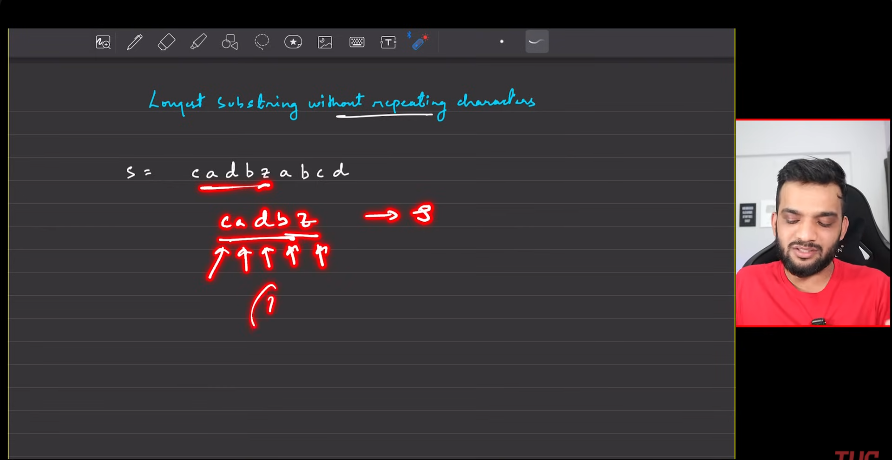 Longest substring without repeating characters
s = c a d b z a b c d
c a d b z → 5